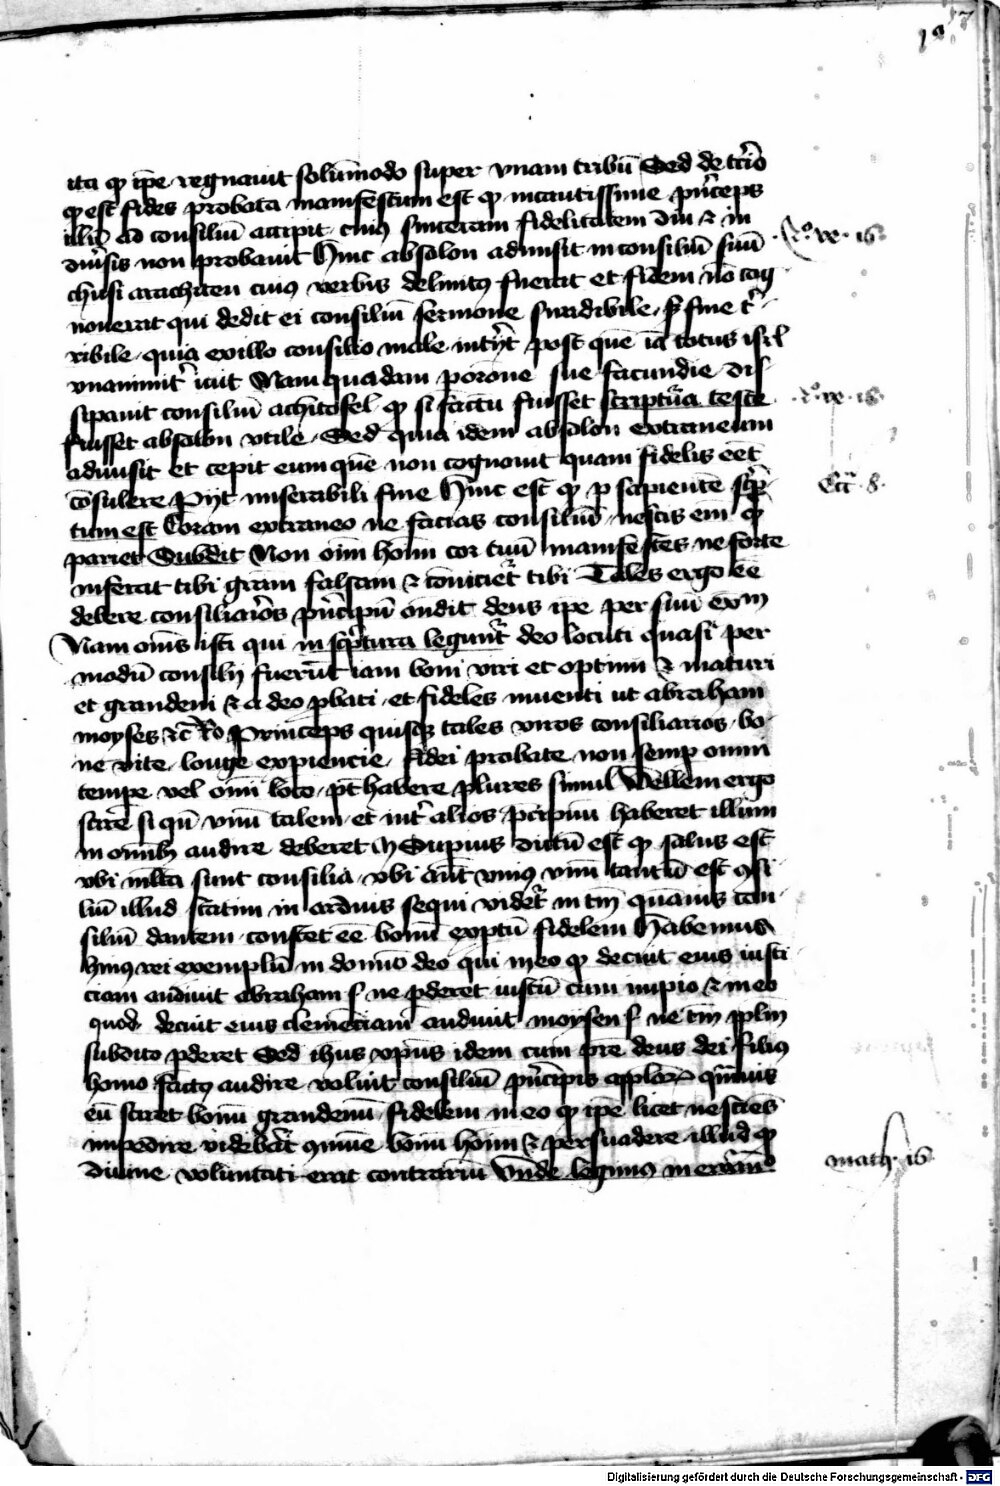 ita qꝫ ip̄e regnauit solūmodo super vnam tribū Sed de tꝛ̄io
qꝫ est fides probata manifestum est qꝫ incautissime pn̄ceps
illū ad consiliū accipit cuiꝰ sinceram fidelitatem diu ⁊ in
diūsis non probauit Hinc absolon admisit in consiliū suū
chusi arachiten cuiꝰ verbis delinitꝰ fuerat et fidem nō cog
nouerat qui dedit ei consiliū sermone suadibile fine
ribile quia ex illo consilio male post quē totus isrl
vnanimit̄ Nam quadam sue facundie dis
sipauit consiliū achitofel qꝫ si factū fuisset scriptura teste
fuisset absolon vtile Sed quia idem absolon extraneum
admisit et cepit eum quē non cognouit quam fidelis eēt
cōsulere Pijt miserabili fine Hinc est qꝫ p sapientē scp̄
tum est Coram extraneo ne facias consiliū nescis em̄ qꝫ
pariet Subdit Non oīm hoīm cor tuū manifestes ne forte
inferat tibi gram falsam ⁊ cōuiciet̄ tibi Tales ergo eē
debere consiliarios pn̄cipū ondit deus ip̄e per suū exm̄
Nam omīs isti qui in scp̄tura legunt̄ deo locuti quasi per
modū consilij fuerūt iam boni viri et optimi ⁊ maturi
et grandeui ⁊ a deo ꝓbati et fideles inuenti ut abraham
moyses ⁊c̄ Princeps quisqꝫ tales viros consiliarios bo
ne vite longe expiencie fidei probate non semp omni
tempe vel om̄i loco pt̄ habere plures simul Vellem ergo
scire si qn̄ vnū talem et int̄ alios haberet illum
in om̄ibꝫ audire deberet Supius dictū est qꝫ salus est
vbi ml̄ta sunt consilia vbi aūt vniꝰ vnū tantū est ꝯsi
liū illud statim in arduis sequi videt̄ quāuis con
siliū dantem constet eē bonū exptū fidelem Habemus
huiꝰ rei exemplū in domīo deo qui in eo qꝫ decuit eius iusti
ciam audiuit abraham s ne ꝑderet iustū cum impio ⁊ in eo
quod decuit eius clemēciam audiuit moysen s ne tm̄ pplm̄
subdito ꝑderet Sed ihus xpūs idem cum pr̄e deus dei filius
homo factꝰ audire voluit consiliū pn̄cipis aplōꝝ qūuis
eū sciret bonū grandeuū fidelem in eo qꝫ ip̄e licet nesciēs
impedire videbat̄ ꝯmune bonū hoīm ⁊ persuadere illud qꝫ
diuine voluntati erat contrariū Vnde legimus in
math 16